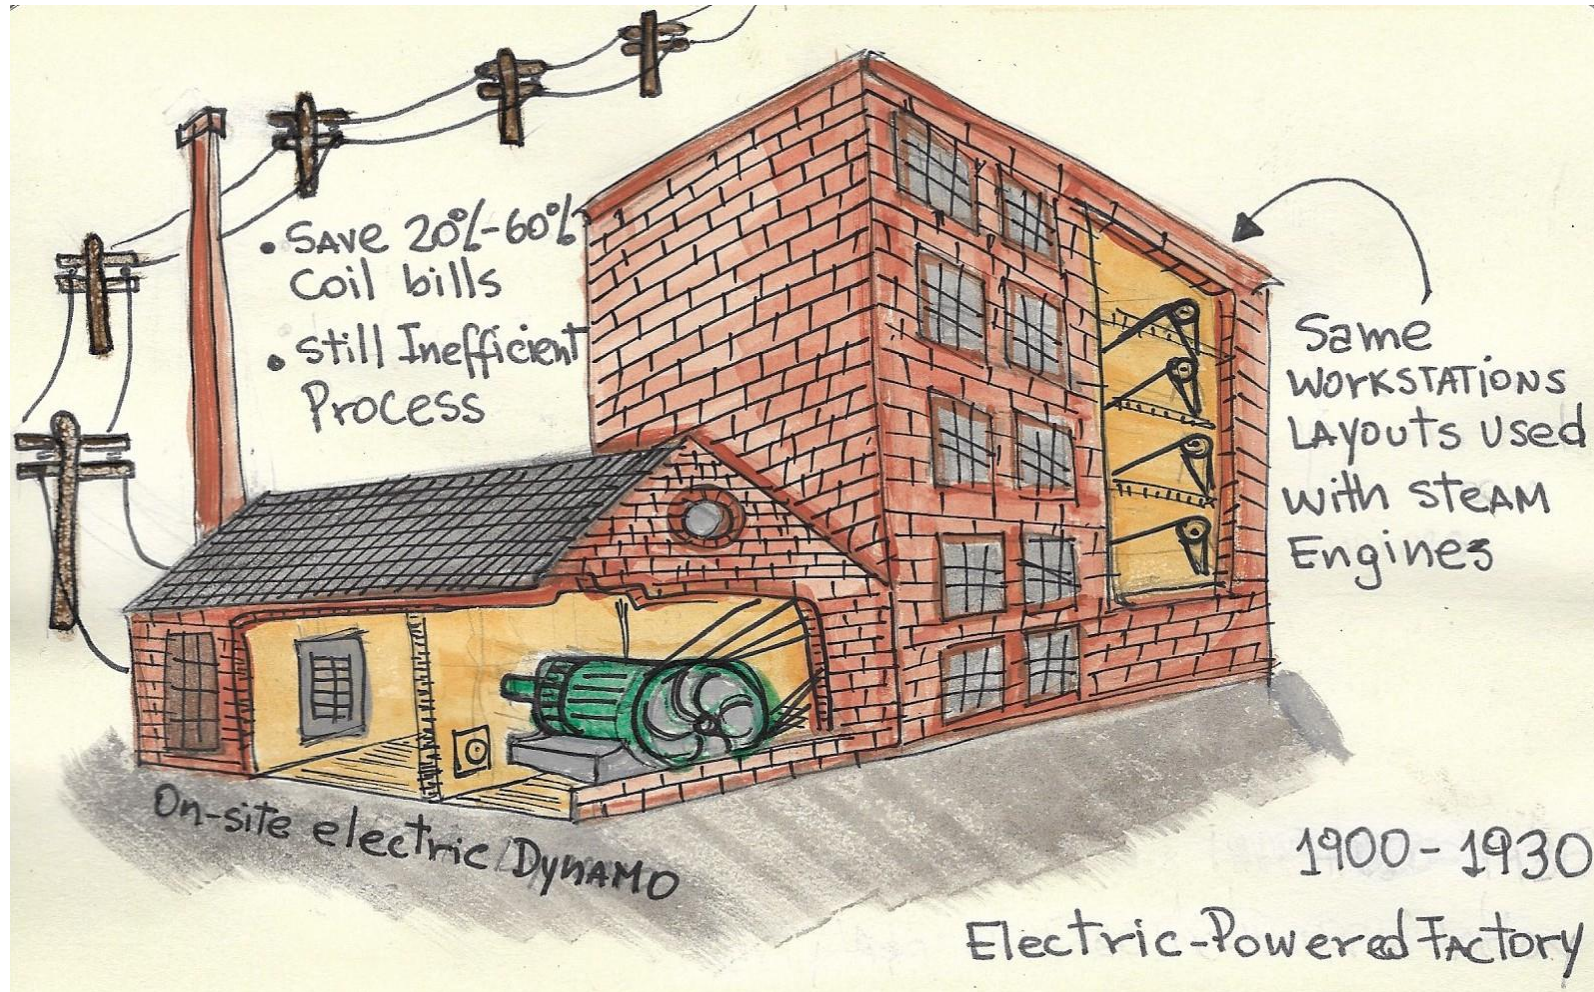 • Save 20%-60%
Coil bills
• still Inefficient
Process
Same
Workstations
Layouts used
with steam
Engines
On-site electric Dynamo
1900-1930
Electric-Powered Factory